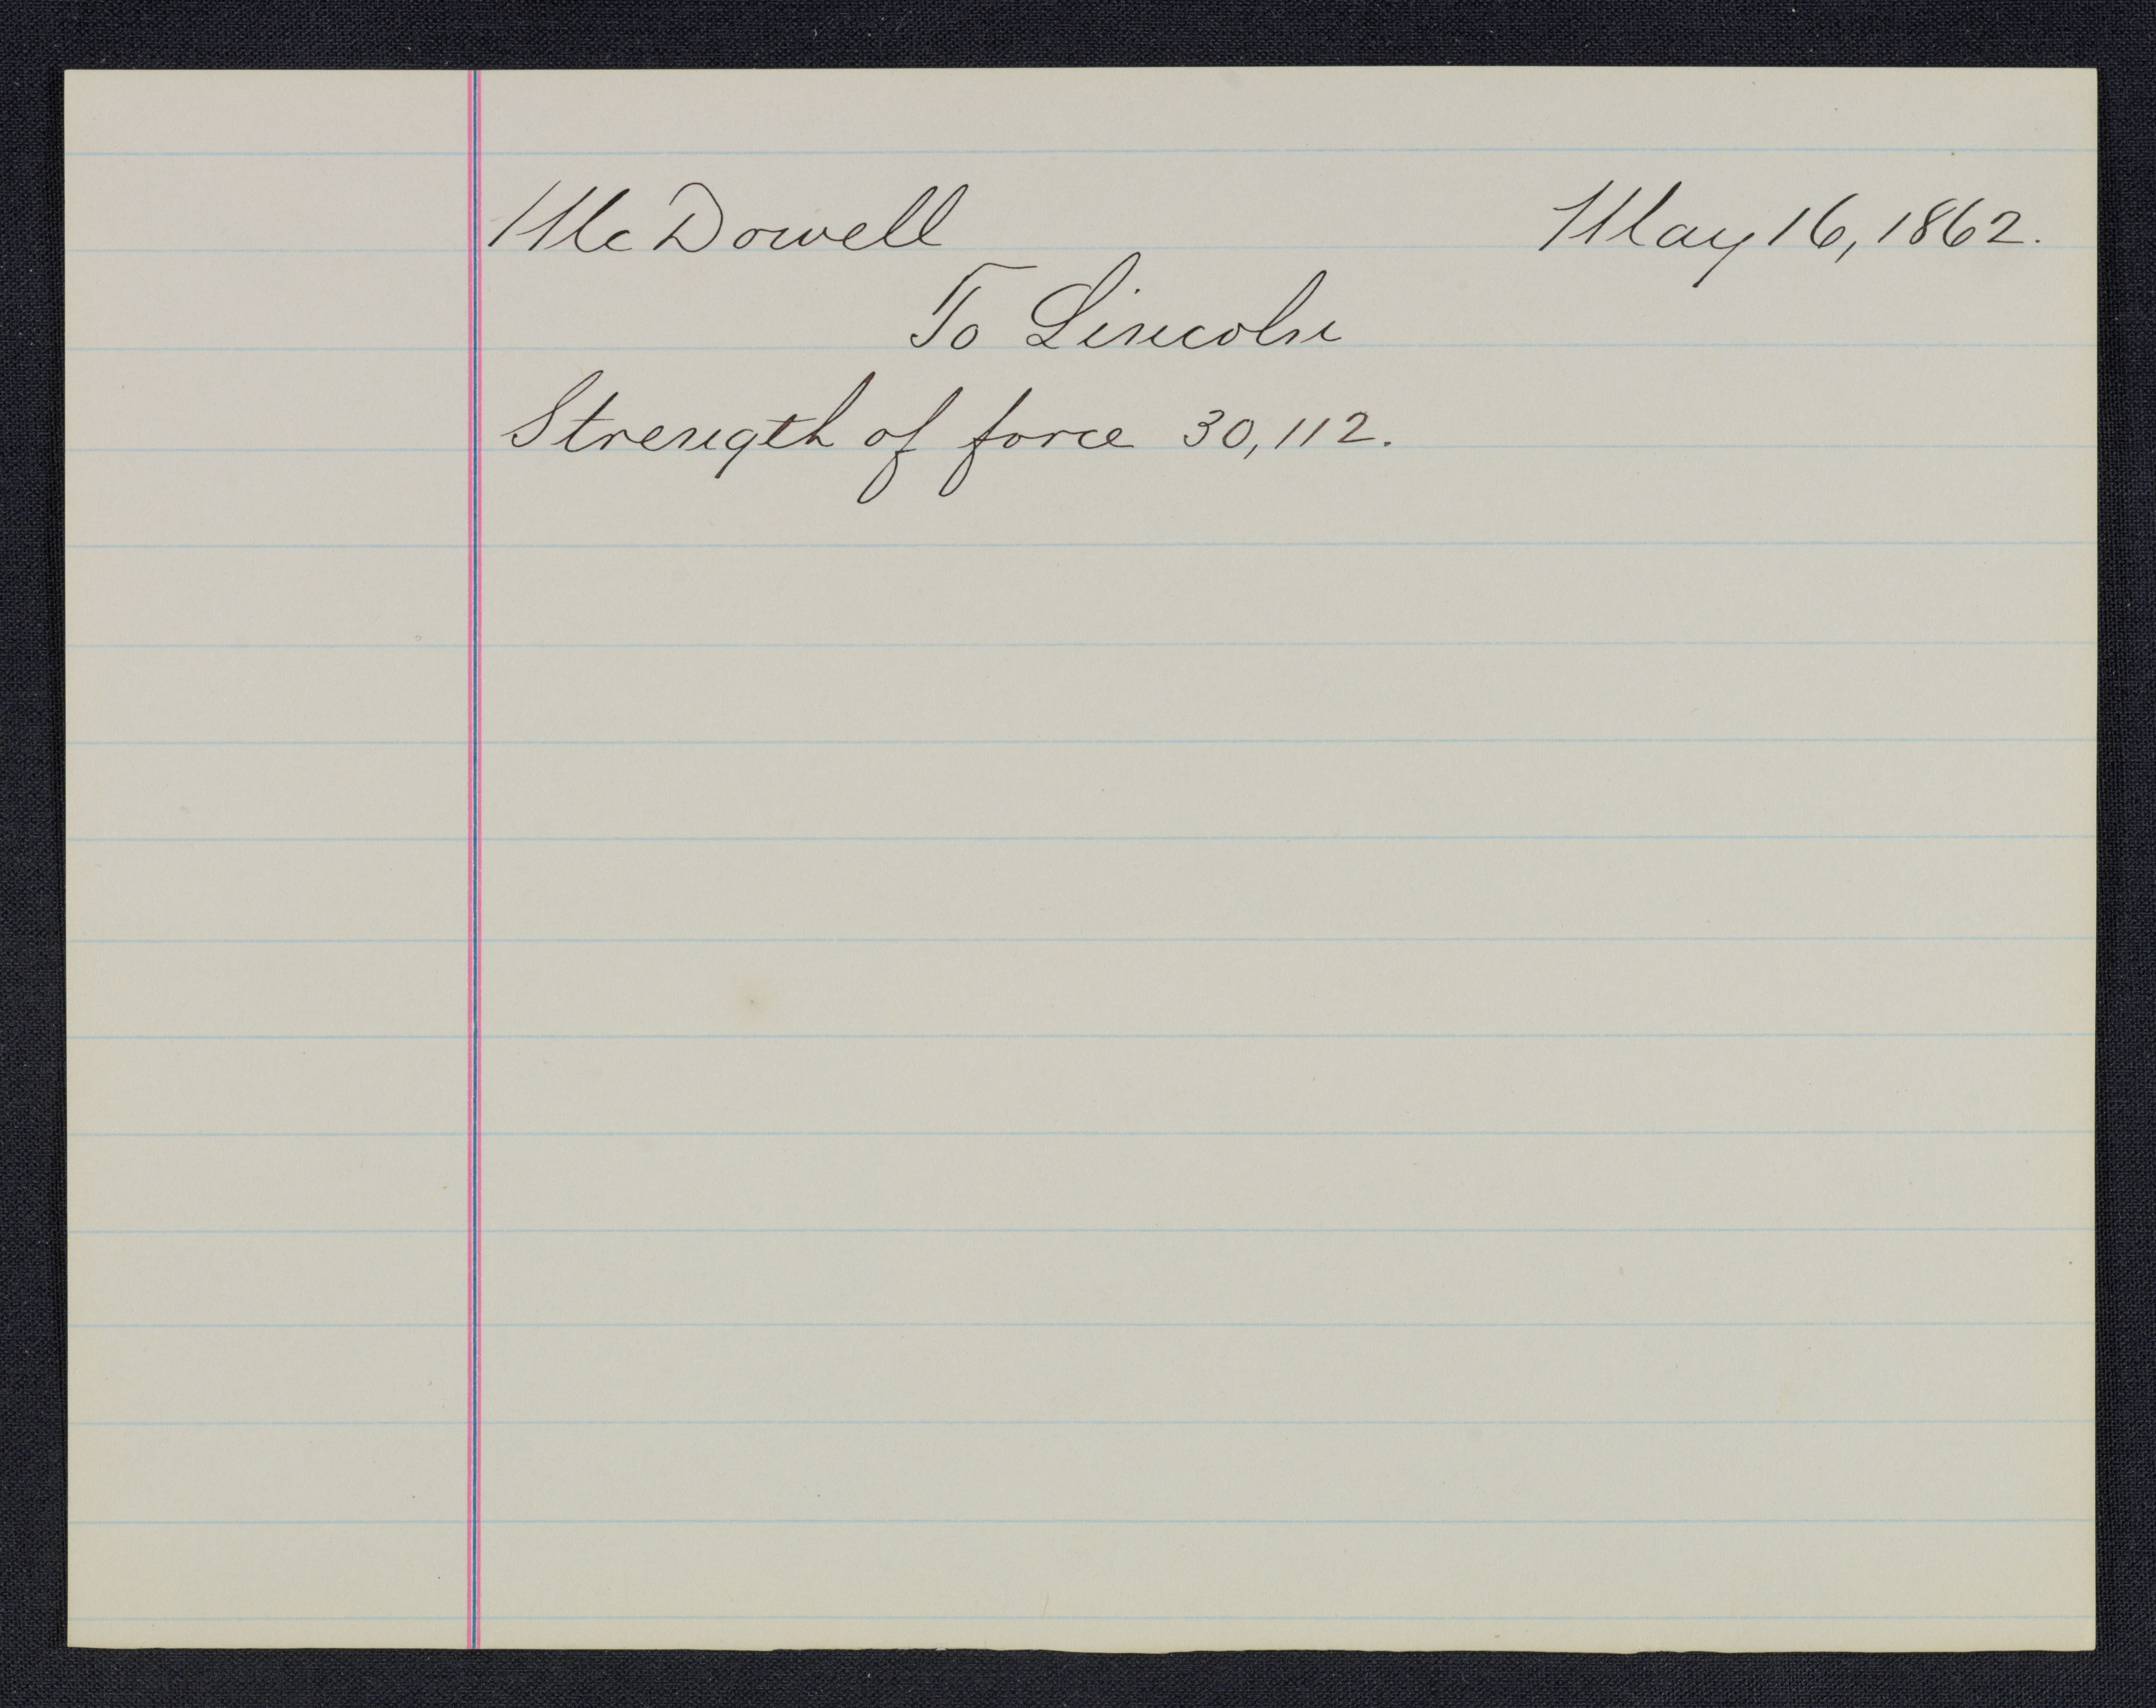 McDowell May 16, 1862.
To Lincoln
Strength of force 30,112.